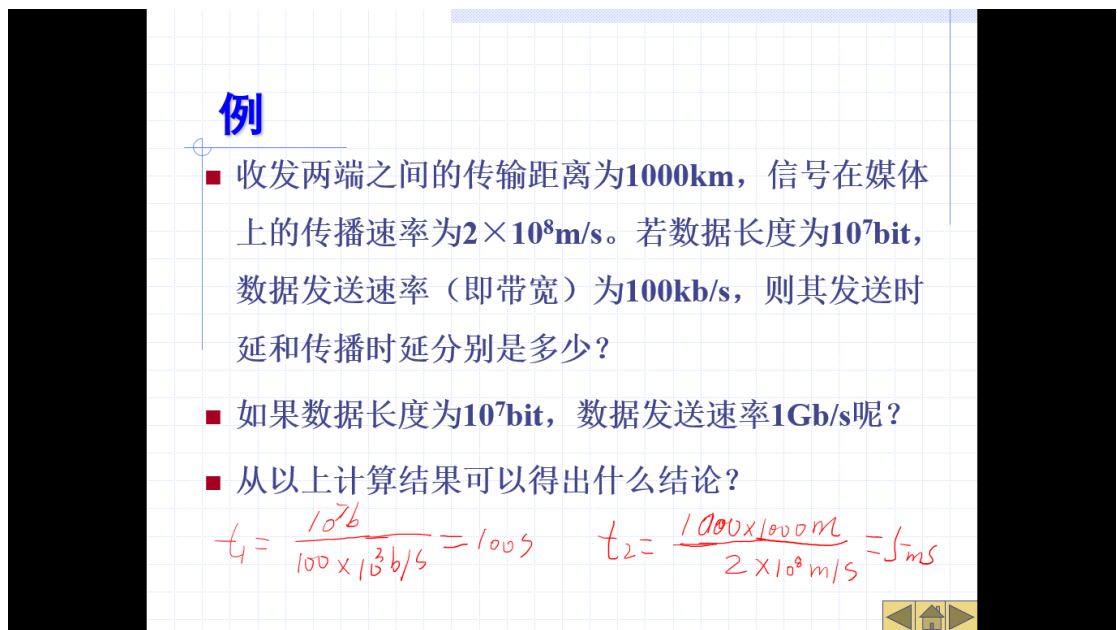 例
收发两端之间的传输距离为1000km，信号在媒体
上的传播速率为2×10⁸m/s。若数据长度为10⁷bit，
数据发送速率（即带宽）为100kb/s，则其发送时
延和传播时延分别是多少？
如果数据长度为10⁷bit，数据发送速率1Gb/s呢？
从以上计算结果可以得出什么结论？
t₁ = 10⁷b / 100×10³b/s = 100s t₂ = 1000×1000m / 2×10⁸m/s = 5ms